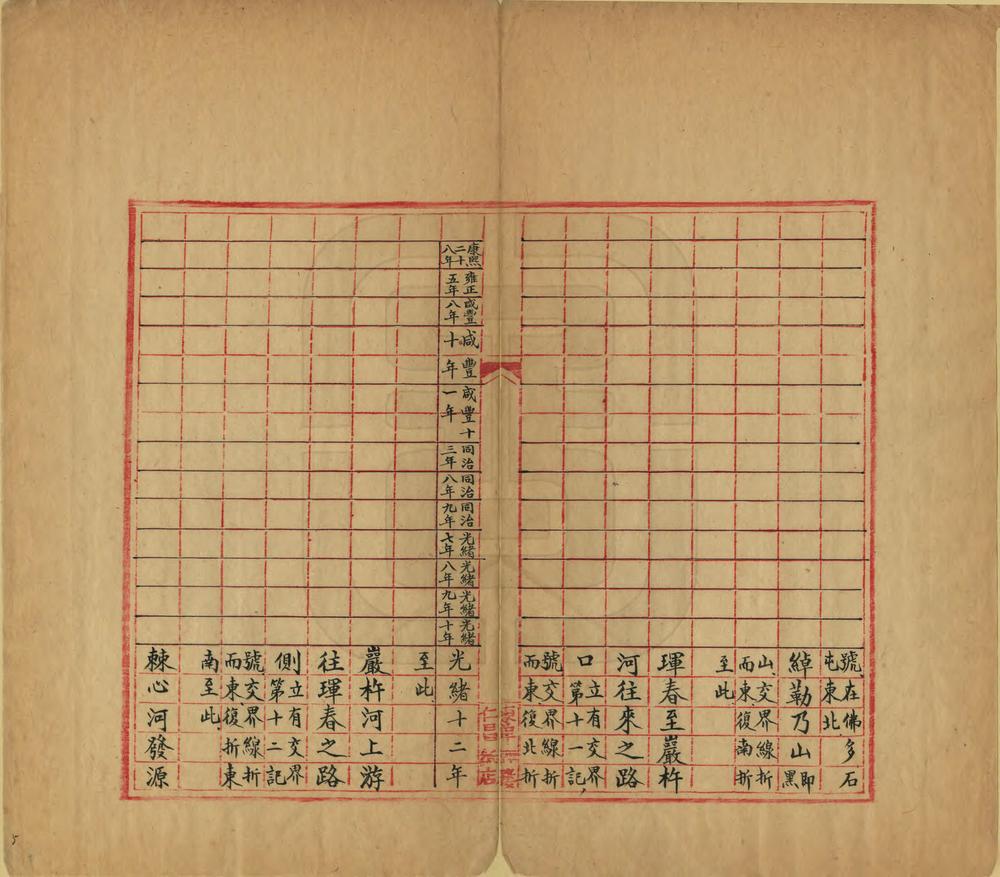 號在佛多石
屯東北
綽勒乃山即黑
山交界線折
而東復南折
至此
琿春至巖杵
河往來之路
口立有交界
第十一記
號交界線折
而東復北折
康熙二十八年
雍正五年
咸豐八年
咸豐十年
咸豐十一年
同治三年
同治八年
同治九年
光緒七年
光緒八年
光緒九年
光緒十年
光緒十二年
至此
巖杵河上游
往琿春之路
側立有交界
第十二記
號交界線折
而東復折東
南至此
棘心河發源